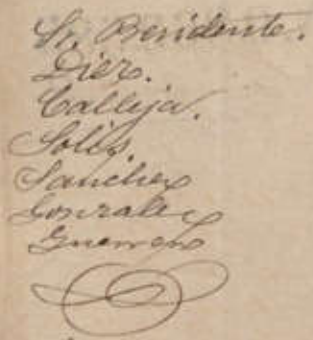 Sr. Presidente.
Diez.
Calleja.
Solis.
Sanchez
Gonzalez
Guerrero